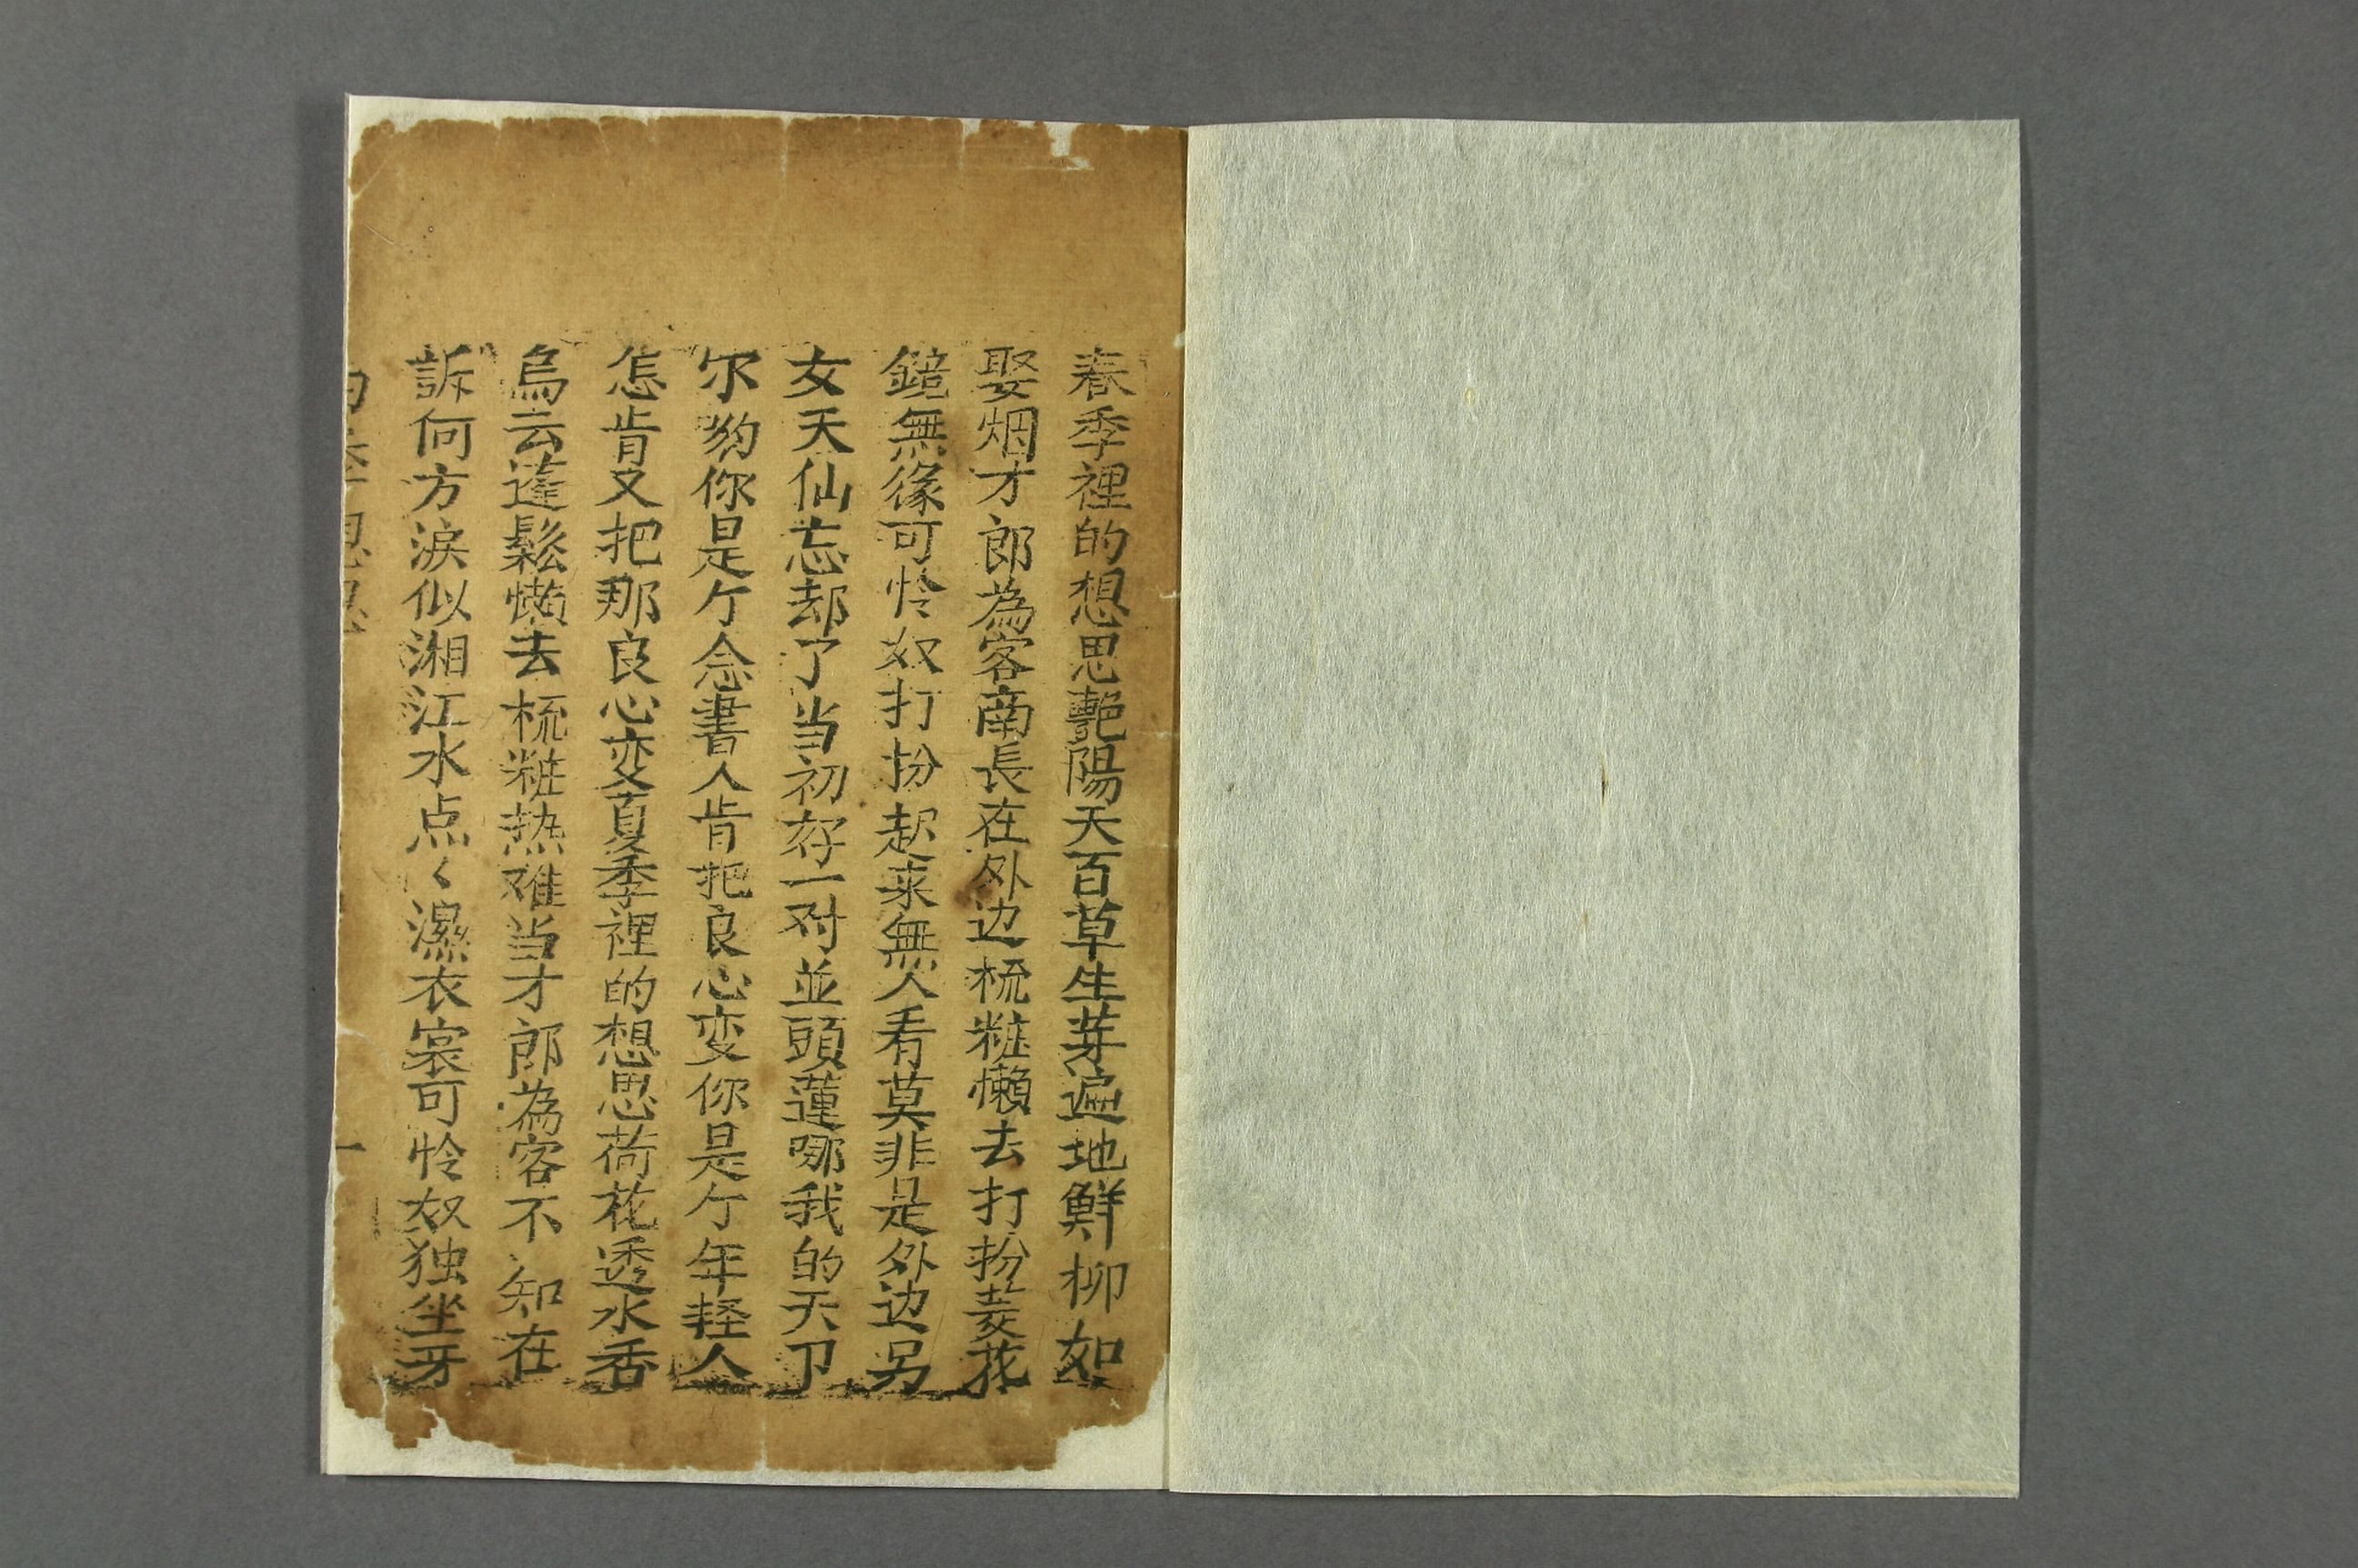 春季裡的想思艶陽天百草生芽遍地鮮柳如
娶烟才郎為客商長在外边梳粧懶去打扮菱花
鏡無緣可怜奴打扮起来無人看莫非是外边另
女天仙忘却了当初好一对並頭蓮哪我的天卩
尔豹你是个念書人肯把良心变你是个年轻人
怎肯又把那良心变夏季裡的想思荷花透水香
烏云蓬鬆懒去梳粧热难当才郎為客不知在
訴何方淚似湘江水点々濕衣裳可怜奴独坐牙
季思思 一